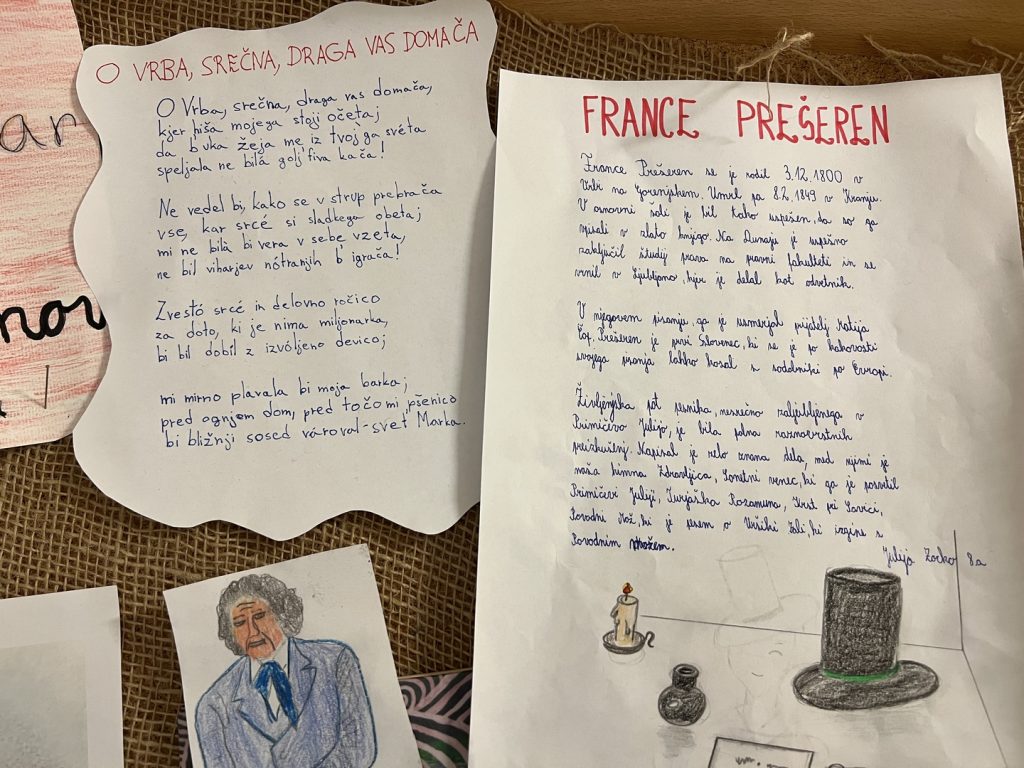 O VRBA, SREČNA, DRAGA VAS DOMAČA
O Vrba, srečna, draga vas domača,
kjer hiša mojega stoji očeta;
da b'uka žeja me iz tvoj'ga svéta
speljala ne bilá golj'fiva kača!
Ne vedel bi, kako se v strup prebrača
vse, kar srcé si sladkega obeta;
mi ne bilà bi vera v sebe vzeta,
ne bil viharjev nótranjih b'igrača!
Zvestó srcé in delovno ročico
za doto, ki je nima miljonarka,
bi bil dobíl z izvóljeno devico;
mi mirno plavala bi moja barka;
pred ognjem dom, pred točo mi pšenico
bi bližnji sosed vároval-svet' Marka.
FRANCE PREŠEREN
France Prešeren se je rodil 3.12.1800 v
Vrbi na Gorenjskem. Umrl pa 8.2.1849 v Kranju.
V osnovni šoli je bil tako uspešen, da so ga
vpisali v zlato knjigo. Na Dunaju je uspešno
zaključil študij prava na pravni fakulteti in se
vrnil v Ljubljano, kjer je delal kot odvetnik.
V njegovem pisanju ga je usmerjal prijatelj Matija
Čop. Prešeren je prvi Slovenec, ki se je po kakovosti
svojega pisanja lahko kosal s sodobniki po Evropi.
Življenjska pot pesnika, nesrečno zaljubljenega v
Primičevo Julijo, je bila polna raznovrstnih
preizkušenj. Napisal je zelo znana dela, med njimi je
naša himna Zdravljica, Sonetni venec, ki ga je posvetil
Primičevi Juliji, Turjaška Rozamunda, Krst pri Savici,
Povodni mož, ki je pesem o Urški zali, ki izgine s
Povodnim možem.
Julija 8.a
ar
nov